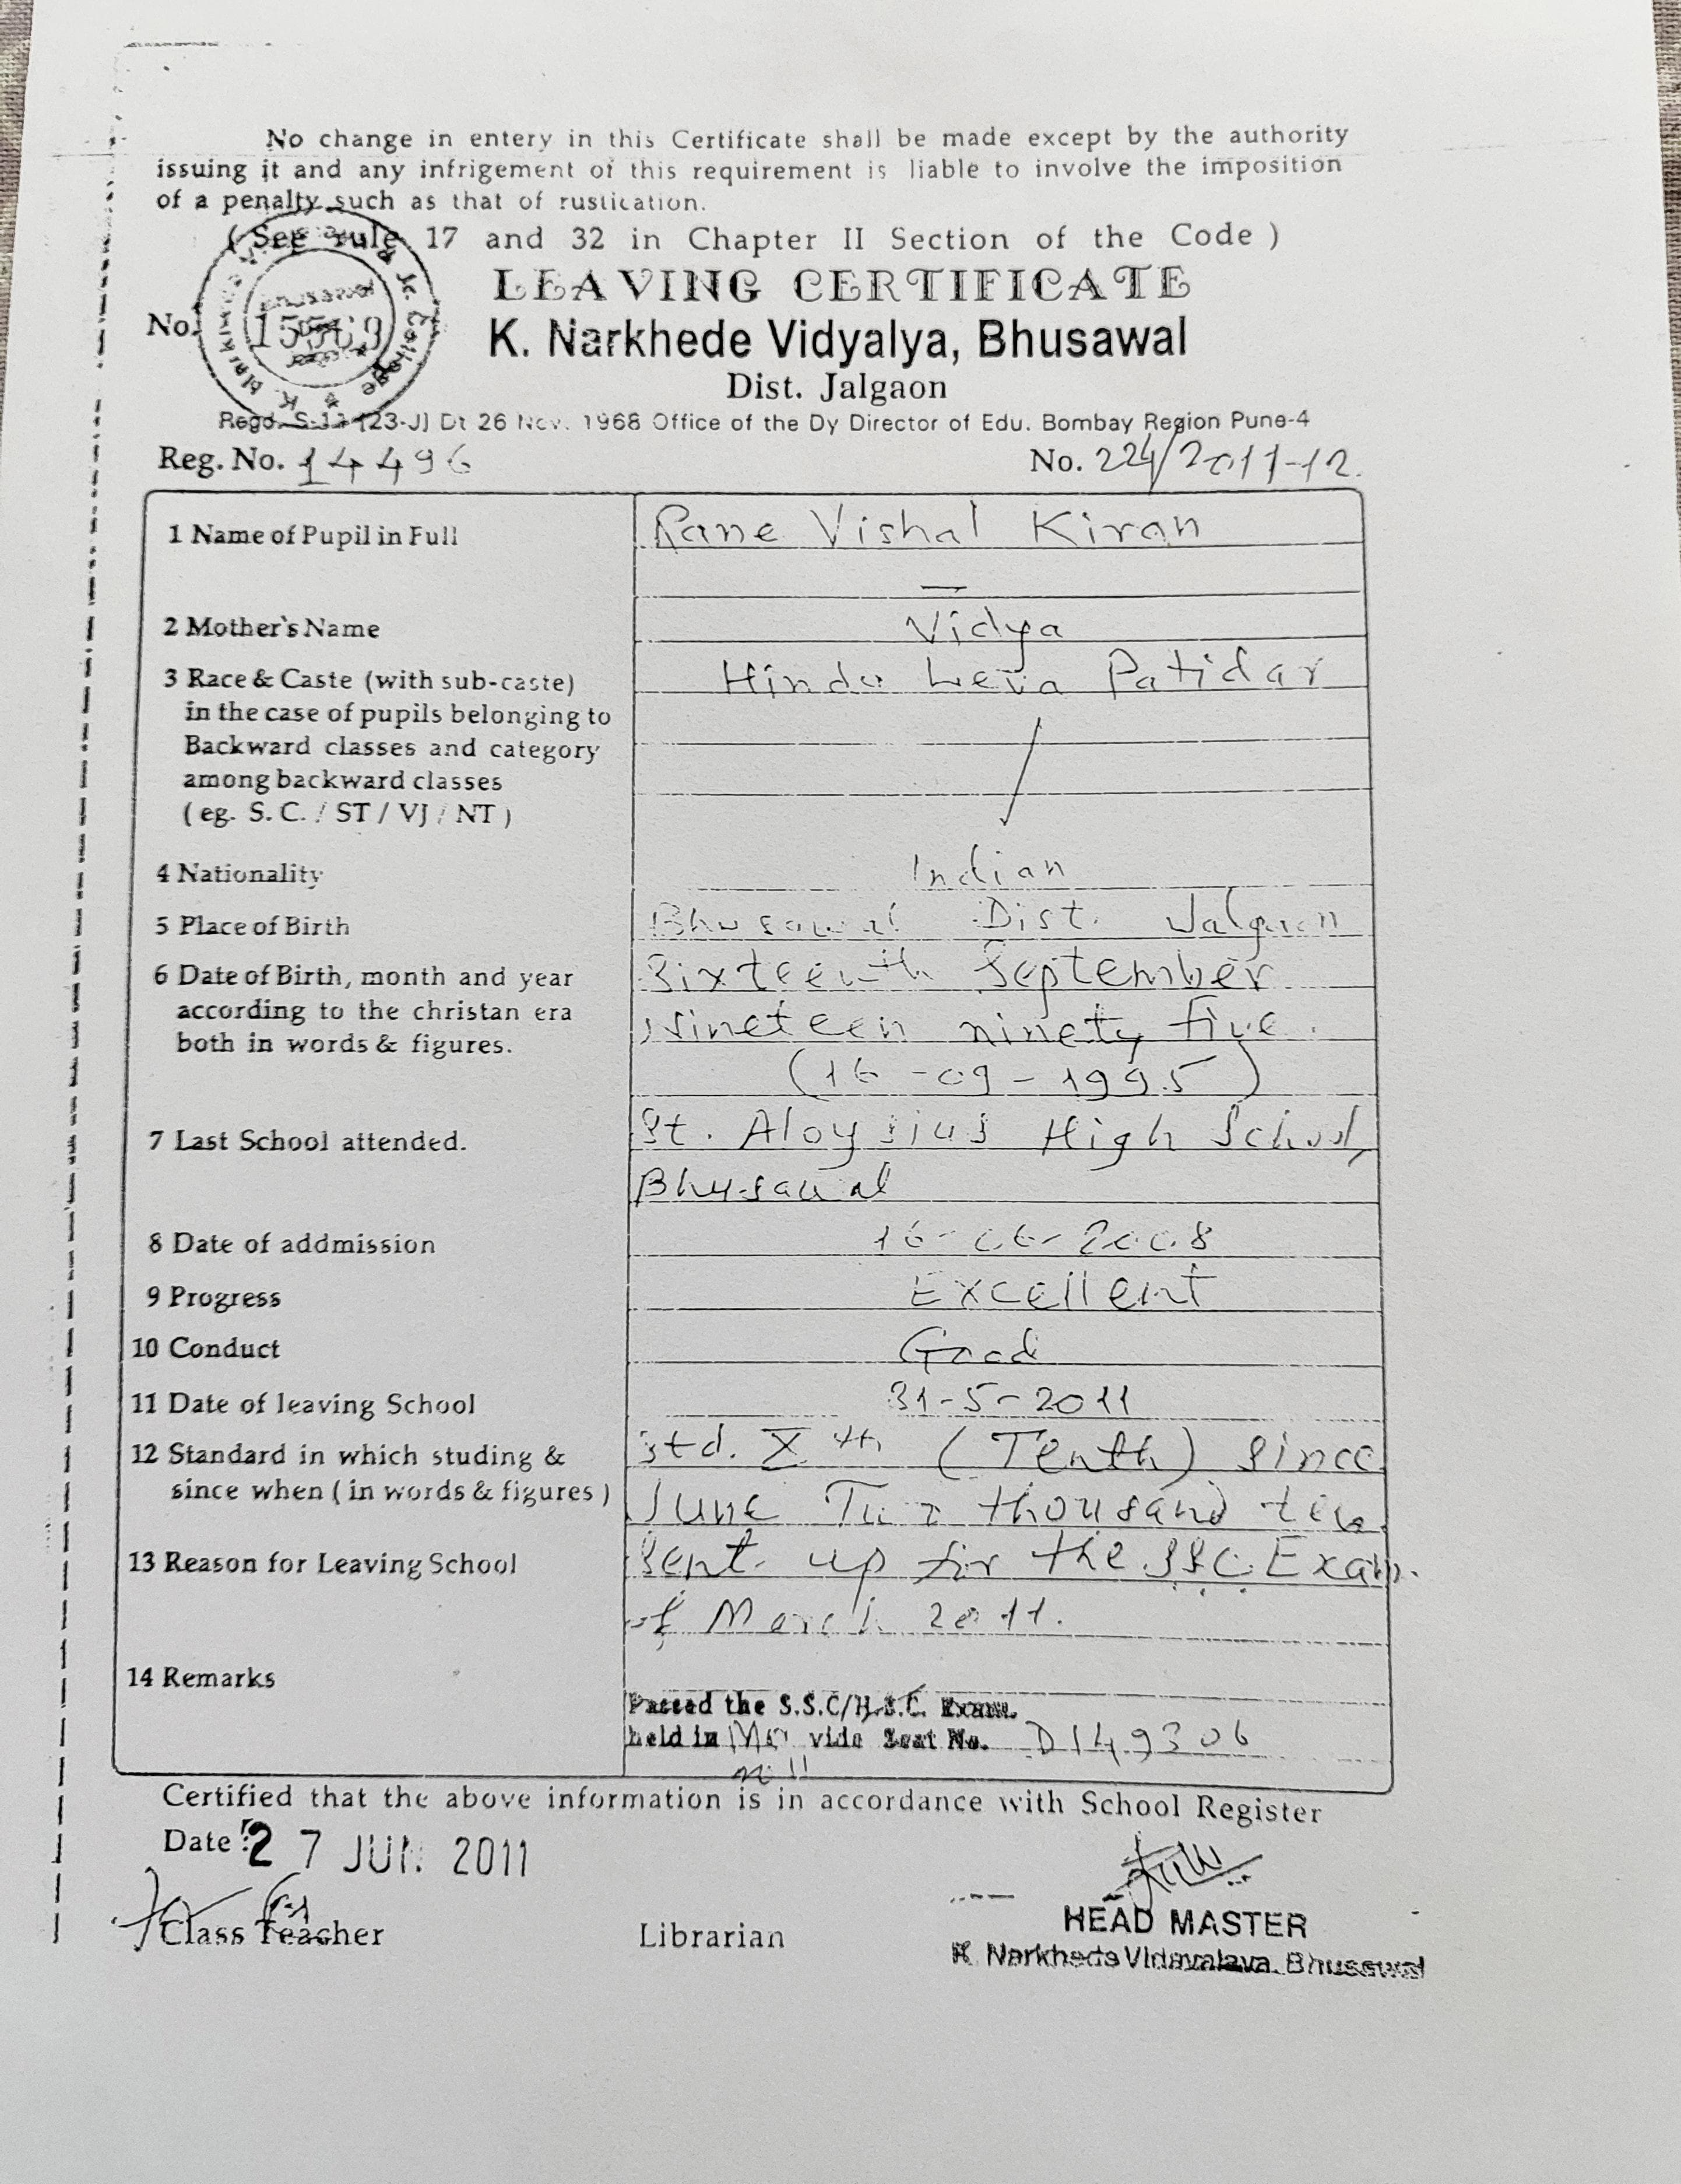 No change in entery in this Certificate shall be made except by the authority
issuing it and any infrigement of this requirement is liable to involve the imposition
of a penalty such as that of rustication.
( See rule 17 and 32 in Chapter II Section of the Code )
LEAVING CERTIFICATE
No.
K. Narkhede Vidyalya, Bhusawal
Dist. Jalgaon
Regd. S-13 [23-J] Dt 26 Nov. 1968 Office of the Dy Director of Edu. Bombay Region Pune-4
Reg. No. 14496 No. 224/2011-12.
1 Name of Pupil in Full Rane Vishal Kiran
2 Mother's Name Vidya
3 Race & Caste (with sub-caste) Hindu Leva Patidar
in the case of pupils belonging to
Backward classes and category
among backward classes
( eg. S. C. / ST / VJ / NT )
4 Nationality Indian
5 Place of Birth Bhusawal Dist. Jalgaon
6 Date of Birth, month and year Sixteenth September
according to the christan era Nineteen ninety five.
both in words & figures. (16-09-1995)
7 Last School attended. St. Aloysius High School,
Bhusawal
8 Date of addmission 16-06-2008
9 Progress Excellent
10 Conduct Good
11 Date of leaving School 31-5-2011
12 Standard in which studing & Std. Xth (Tenth) Since
since when ( in words & figures ) June Two thousand ten.
13 Reason for Leaving School Sent up for the SSC Exam.
of March 2011.
14 Remarks
Passed the S.S.C/H.S.C. Exam.
held in vide Seat No. D149306
Certified that the above information is in accordance with School Register
Date : 27 JUN. 2011
Class Teacher Librarian HEAD MASTER
K. Narkhede Vidayalaya. Bhusawal